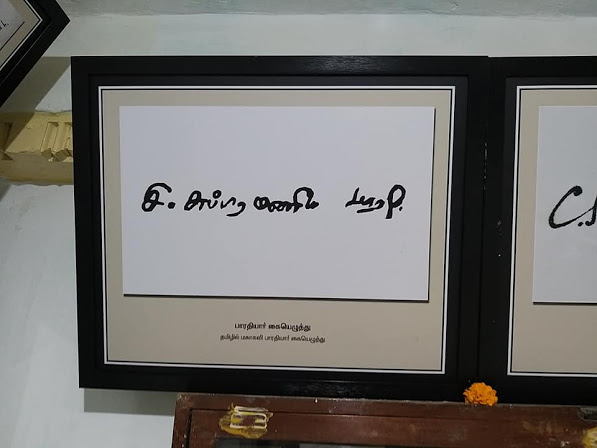 சி. சுப்பிரமணிய பாரதி.
பாரதியார் கையெழுத்து
தமிழில் மகாகவி பாரதியார் கையெழுத்து
C.S